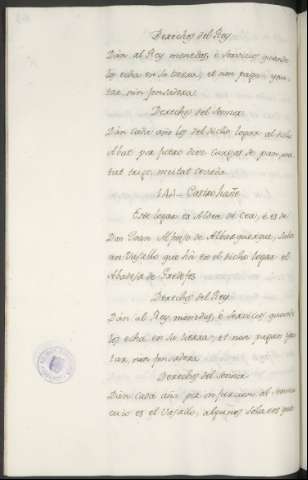 Derechos del Rey
Dan al Rey monedas, e servicios quando
los echa en su tierra, et non pagan yan-
tar, nin fonsadera.
Derechos del Señor
Dan cada año los del dicho logar al dicho
Abat por fuero doce cargas de pan, mi-
tat trigo, meitat
Este logar es Aldea de Cea, e es de
Don Juan Alfonso de Alburquerque, solar
un Vasallo que ha en el dicho logar el
Abadesa de Gradefes
Derechos del Rey
Dan al Rey, monedas, e servicios quando
los echa en su tierra, et non pagan yan-
tar, nin fonsadera
Derechos del Señor
Dan cada año por infurcion al Señor
cuio es el Vasallo, algunos solares que